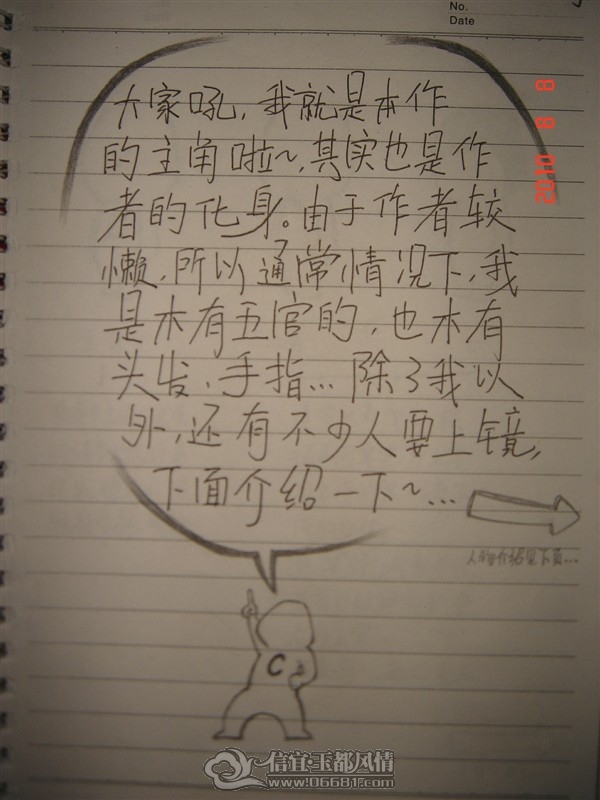 No.
Date
大家吼，我就是本作
的主角啦~，其实也是作
者的化身。由于作者较
懒，所以通常情况下，我
是木有五官的，也木有
头发、手指…除了我以
外，还有不少人要上镜，
下面介绍一下~…
人物介绍见下页…
C
8 8 2010
信宜·玉都风情
www.06681.com